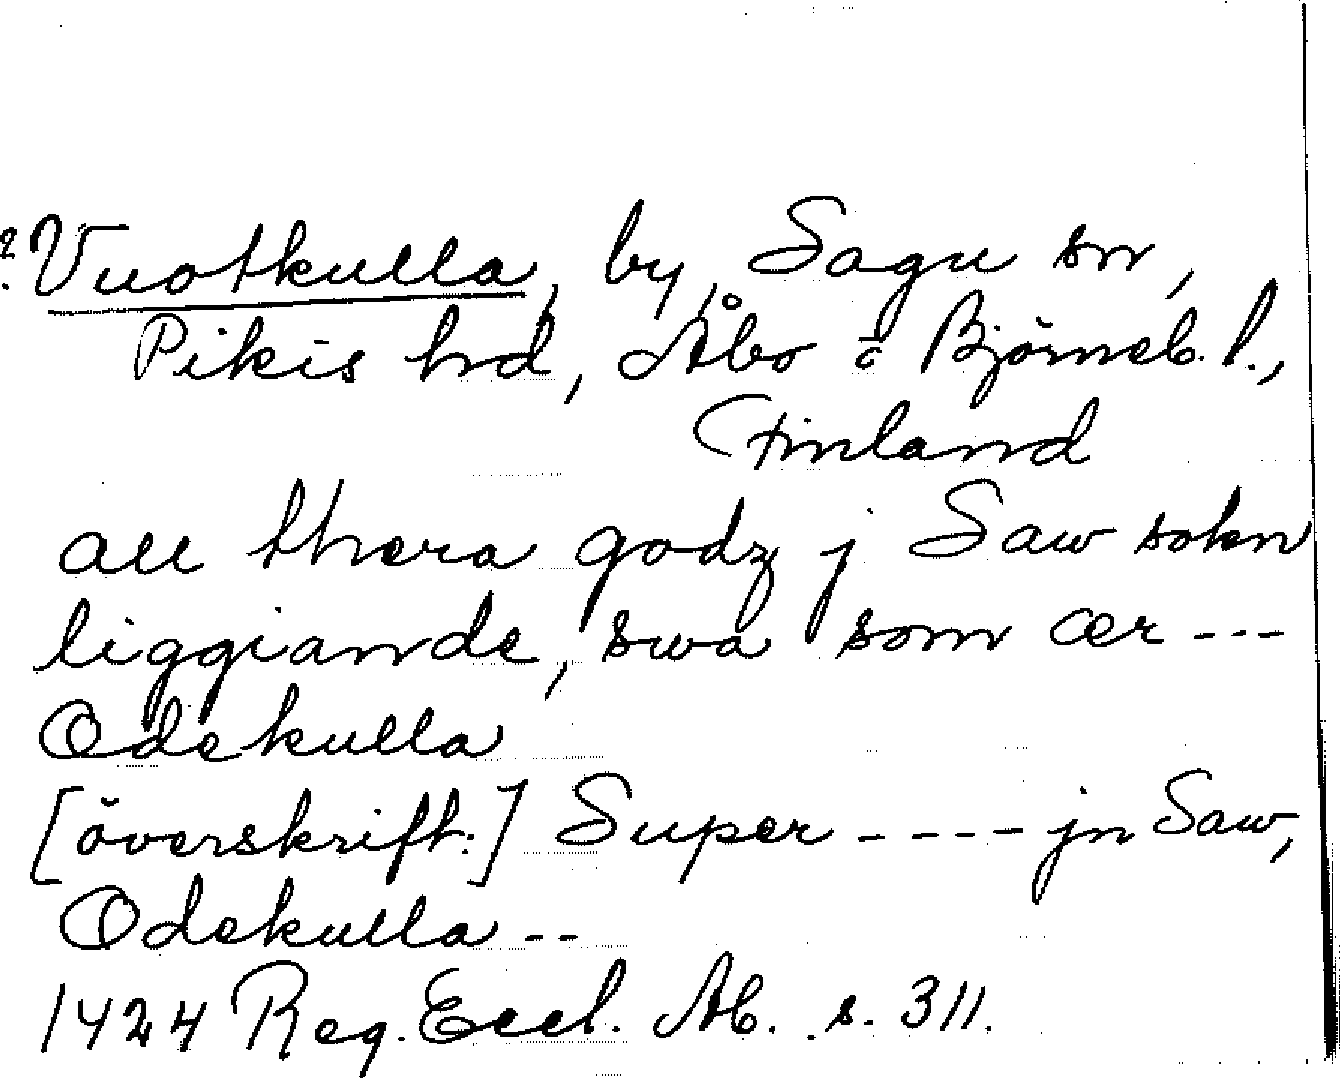 ? Vuotkulla, by, Sagu sn,
Pikis hd, Åbo o Björneb. l.,
Finland
all thera godz j Saw sokn
liggiande, swa som ær ---
Odekulla
[överskrift:] Super ---- jn Saw,
Odekulla --
1424 Reg. Eccl. Ab. s. 311.